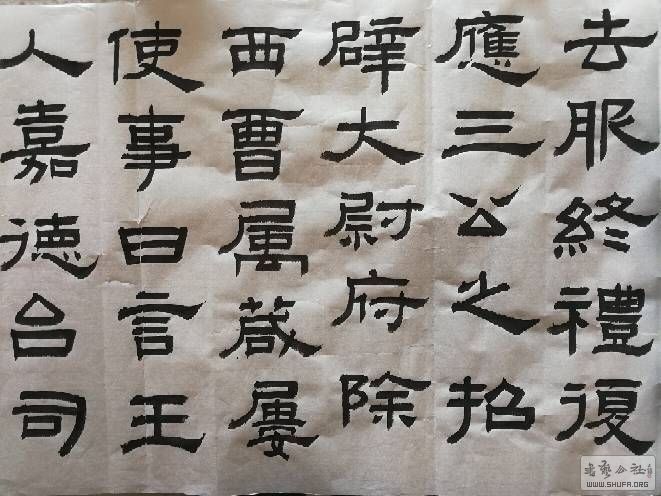 去服終禮復
應三公之招
辟大尉府除
西曹属葴屢
使事曰言王
人嘉德台司
书艺公社
WWW.SHUFA.ORG